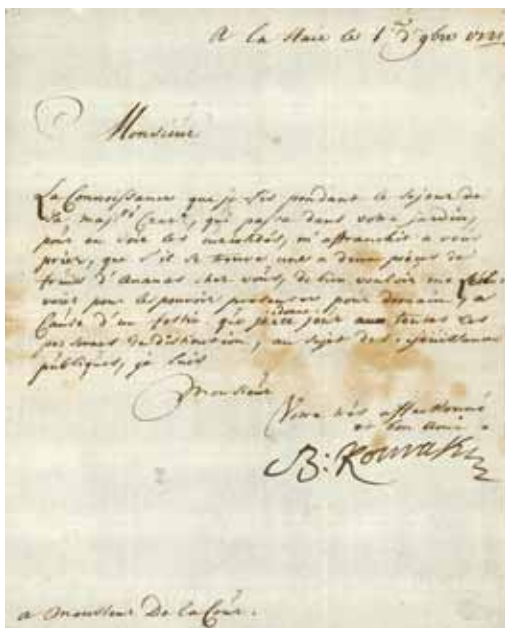 A la Haie le 1.er d'9bre
Monsieur
La Connoissance que je fis pendant le sejour de
Sa majté Czar:, qui passa dans votre jardin,
pour en voir les , m'affranchit a vous
prier, que s'il se trouve une a deux pieces de
fruits d'Ananas chez vous, de bien vouloir me les
voier pour les pouvoir presenter pour demain, a
Cause d'un festin que je donne jour aux toutes les
personnes de distinction, au sujet des rejouissances
publiques, je suis
Monsieur
Votre très affectionné
et bon Amis
B: Kourakin
a monsieur De la Cour.